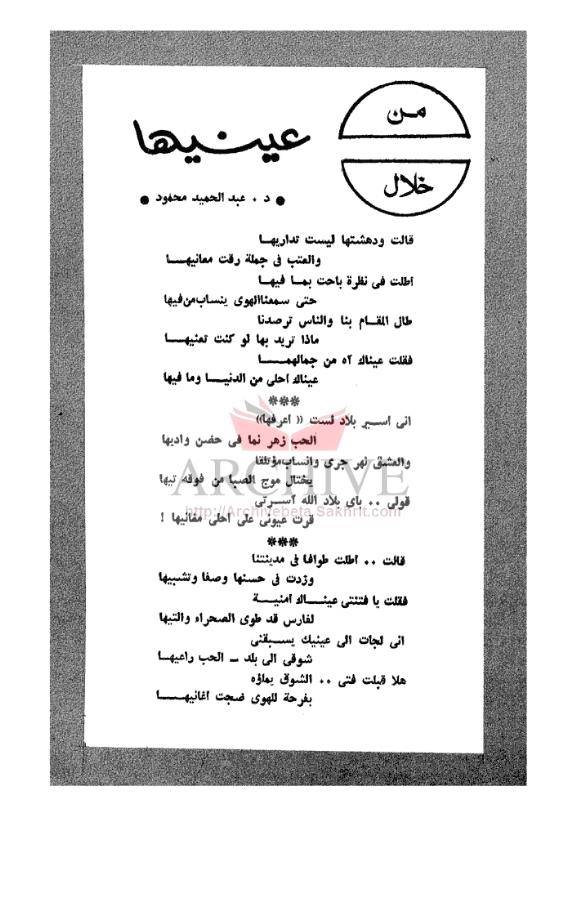 من
خلال
عينيها
● د . عبد الحميد محمود ●
قالت ودهشتها ليست تداريهـا
والعتب فى جملة رقت معانيهـــا
اطلت فى نظرة باحت بمـا فيهـا
حتى سمعنا الهوى ينساب من فيها
طال المقـام بنا والناس ترصدنا
ماذا تريد بها لو كنت تعنيهـــا
فقلت عيناك آه من جمالهمــــا
عيناك احلى من الدنيـــا وما فيها
***
انى اسـير بلاد لست (( اعرفها))
الحب زهر نما فى حضن واديها
والعشق نهر جرى وانساب مؤتلقا
يختال موج الصبا من فوقه تيها
قولى .. باى بلاد الله اسـرتى
قرت عيونى على احلى مغانيها !
***
قالت .. اطلت طوافا فى مدينتنا
وزدت فى حسنها وصفا وتشبيها
فقلت يا فتنتى عينـــاك امنيــة
لفارس قد طوى الصحراء والتيها
انى لجات الى عينيك يســبقنى
شوقى الى بلد ــ الحب راعيهـا
هلا قبلت فتى .. الشوق يملؤه
بفرحة للهوى ضجت اغانيهـــا
ARCHIVE
http://Archivebeta.Sakhrit.com